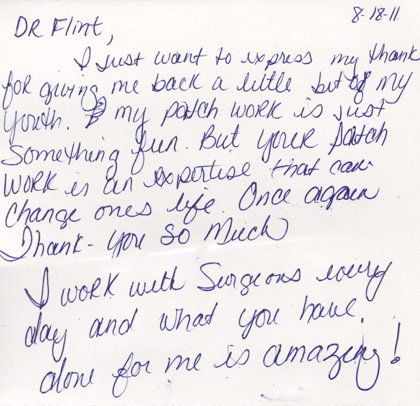 8-18-11
DR Flint,
I just want to express my thank
for giving me back a little bit of my
youth. my patch work is just
something fun. But your Patch
work is an expertise that can
change ones life. Once again
Thank-you so much
I work with Surgeons every
day and what you have
done for me is amazing!